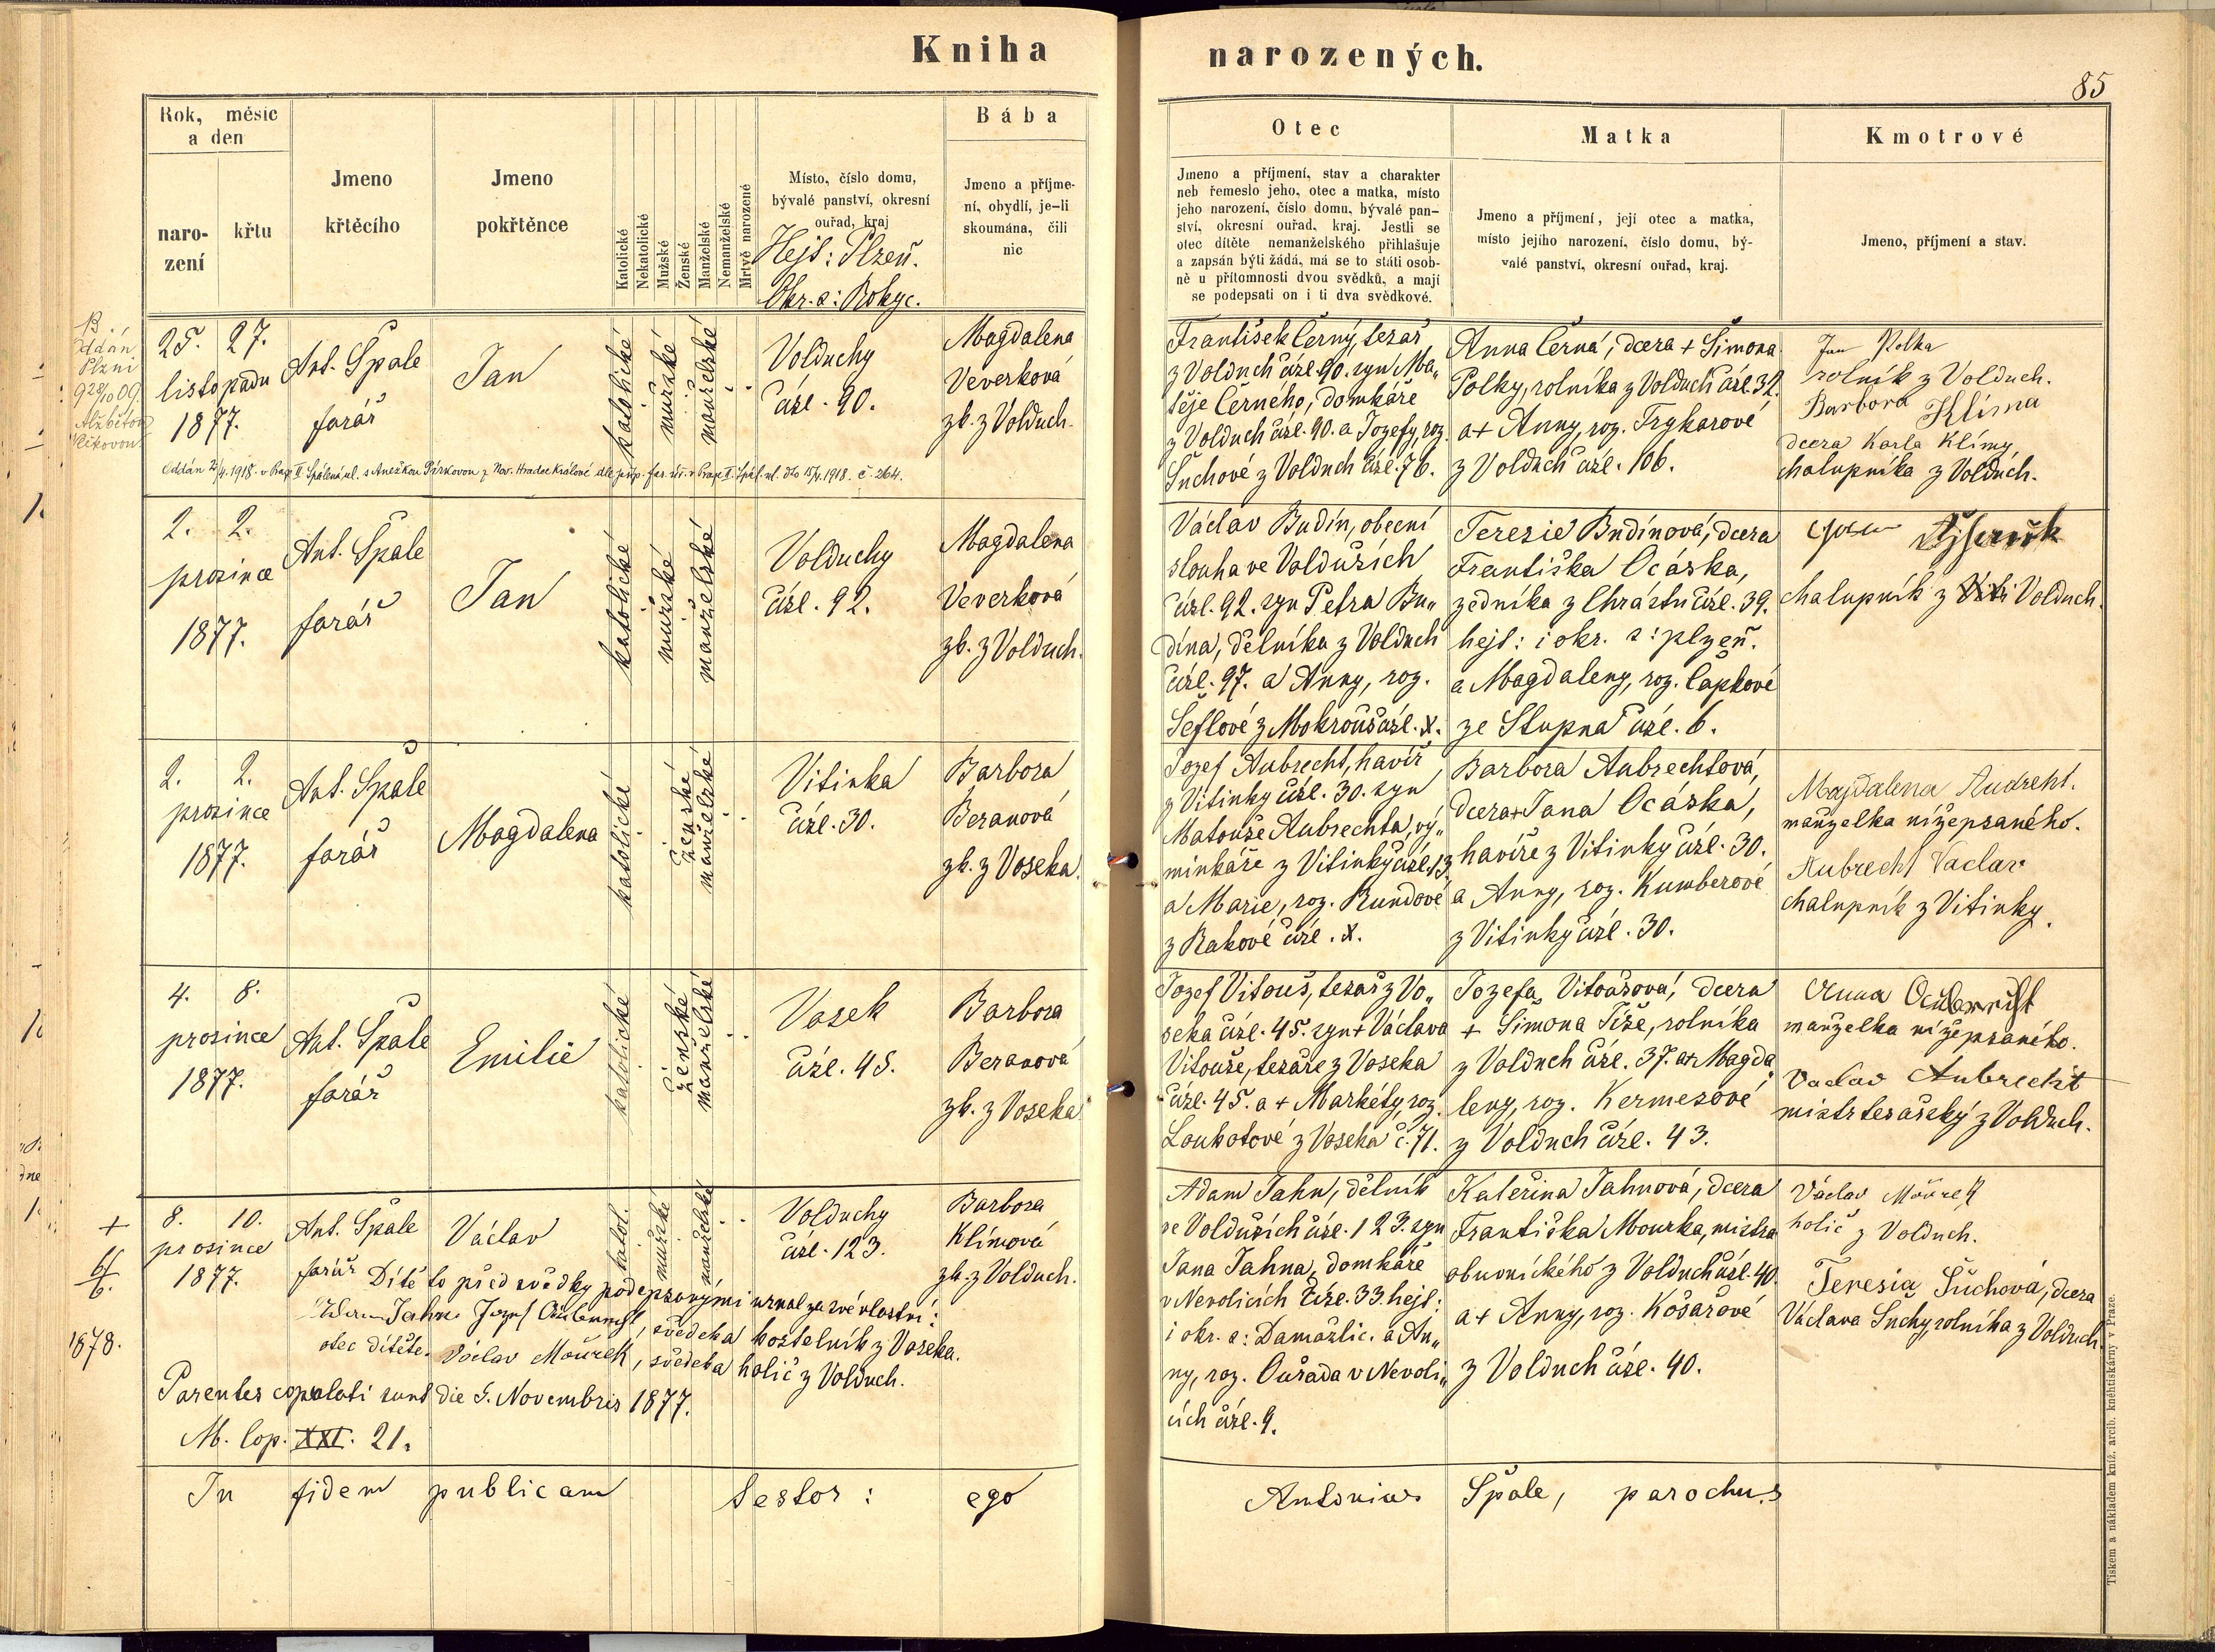 Kniha narozených.
85
Rok, měsíc
a den
naro-
zení
křtu
Jmeno
křtěcího
Jmeno
pokřtěnce
Katolické
Nekatolické
Mužské
Ženské
Manželské
Nemanželské
Mrtvě narozené
Místo, číslo domu,
bývalé panství, okresní
ouřad, kraj
Hejt: Plzeň.
Okr. s: Rokyc.
Bába
Jmeno a příjme-
ní, obydlí, je-li
skoumána, čili
nic
Otec
Jmeno a příjmení, stav a charakter
neb řemeslo jeho, otec a matka, místo
jeho narození, číslo domu, bývalé pan-
ství, okresní ouřad, kraj. Jestli se
otec dítěte nemanželského přihlašuje
a zapsán býti žádá, má se to státi osob-
ně u přítomnosti dvou svědků, a mají
se podepsati on i ti dva svědkové.
Matka
Jmeno a příjmení, její otec a matka,
místo jejího narození, číslo domu, bý-
valé panství, okresní ouřad, kraj.
Kmotrové
Jmeno, příjmení a stav.
25. 27.
listopadu
1877.
Ant. Špale
farář
Jan
katolické
mužské
manželské
Volduchy
čísl. 90.
Magdalena
Veverková
zk. z Volduch.
František Černý, tesař
z Volduch čísl. 90. syn Ma„
těje Černého, domkáře
z Volduch čísl. 90. a Jozefy, roz.
Suchové z Volduch čísl. 76.
Anna Černá, dcera + Šimona
Polky, rolníka z Volduch čísl. 32.
a + Anny, roz. Trykarové
z Volduch čísl. 106.
Jan Polka
rolník z Volduch.
Barbora Klíma
dcera Karla Klímy
chalupníka z Volduch.
2. 2.
prosince
1877.
Ant. Špale
farář
Jan
katolické
mužské
manželské
Volduchy
čísl. 92.
Magdalena
Veverková
zk. z Volduch.
Václav Budín, obecní
slouha ve Volduších
čísl. 92. syn Petra Bu„
dína, dělníka z Volduch
čísl. 97. a Anny, roz.
Šeflové z Mokrouš čísl. X.
Teresie Budínová, dcera
Františka Ocáska,
zedníka z Chrástu čísl. 39.
hejt: i okr. s: plzeň.
a Magdaleny, roz. Capkové
ze Stupna čísl. 6.
chalupník z Volduch.
2. 2.
prosince
1877.
Ant. Špale
farář
Magdalena
katolické
ženské
manželské
Vitinka
čísl. 30.
Barbora
Beranová
zk. z Voseka.
Jozef Aubrecht, havíř
z Vitinky čísl. 30. syn
Matouše Aubrechta, vý„
minkáře z Vitinky čísl. 13
a Marie, roz. Rundové
z Rakové čísl. X.
Barbora Aubrechtová,
dcera + Jana Ocáska,
havíře z Vitinky čísl. 30.
a Anny, roz. Kumberové
z Vitinky čísl. 30.
Magdalena Audreht.
manželka nížepsaného.
Aubrecht Vaclav
chalupník z Vitinky.
4. 8.
prosince
1877.
Ant. Špale
farář
Emilie
katolické
ženské
manželské
Vosek
čísl. 45.
Barbora
Beranová
zk. z Voseka.
Jozef Vitouš, tesař z Vo„
seka čísl. 45. syn + Václava
Vitouše, tesaře z Voseka
čísl. 45. a + Markéty, roz.
Loukotové z Voseka č. 71.
Jozefa Vitoušová, dcera
+ Šimona Tíže, rolníka
z Volduch čísl. 37. a + Magda„
leny, roz. Kermesové
z Volduch čísl. 43.
Anna
manželka nížepsaného.
Vaclav Aubrecht
mistr tesařský z Volduch.
+
6/6.
1878.
8. 10.
prosince
1877.
Ant. Špale
farář
Václav
katol.
mužské
manželské
Volduchy
čísl. 123.
Barbora
Klímová
zk. z Volduch.
Dítě to před svědky podepsanými uznal za své vlastní:
Adam Jahn Jozef Aubrecht, svědek a kostelník z Voseka.
otec dítěte. Václav Mouřek, svědek a holič z Volduch.
Parentes copulati sunt die 5. Novembris 1877.
M. Cop. XXI. 21.
Adam Jahn, dělník
ve Volduších čísl. 123. syn
Jana Jahna, domkáře
v Nevolicích čísl. 33. hejt:
i okr. s: Damažlic. a An„
ny, roz. Ouřada v Nevoli„
cích čísl. 9.
Kateřina Jahnová, dcera
Františka Mourka, mistra
obuvnického z Volduch čísl. 40.
a + Anny, roz. Košařové
z Volduch čísl. 40.
Václav Mouřek
holič z Volduch.
Teresia Suchová, dcera
Václava Suchy, rolníka z Volduch.
In fidem publicam testor: ego Antonius Špale, parochus
Tiskem a nákladem kníž. arcib. kněhtiskárny v Praze.